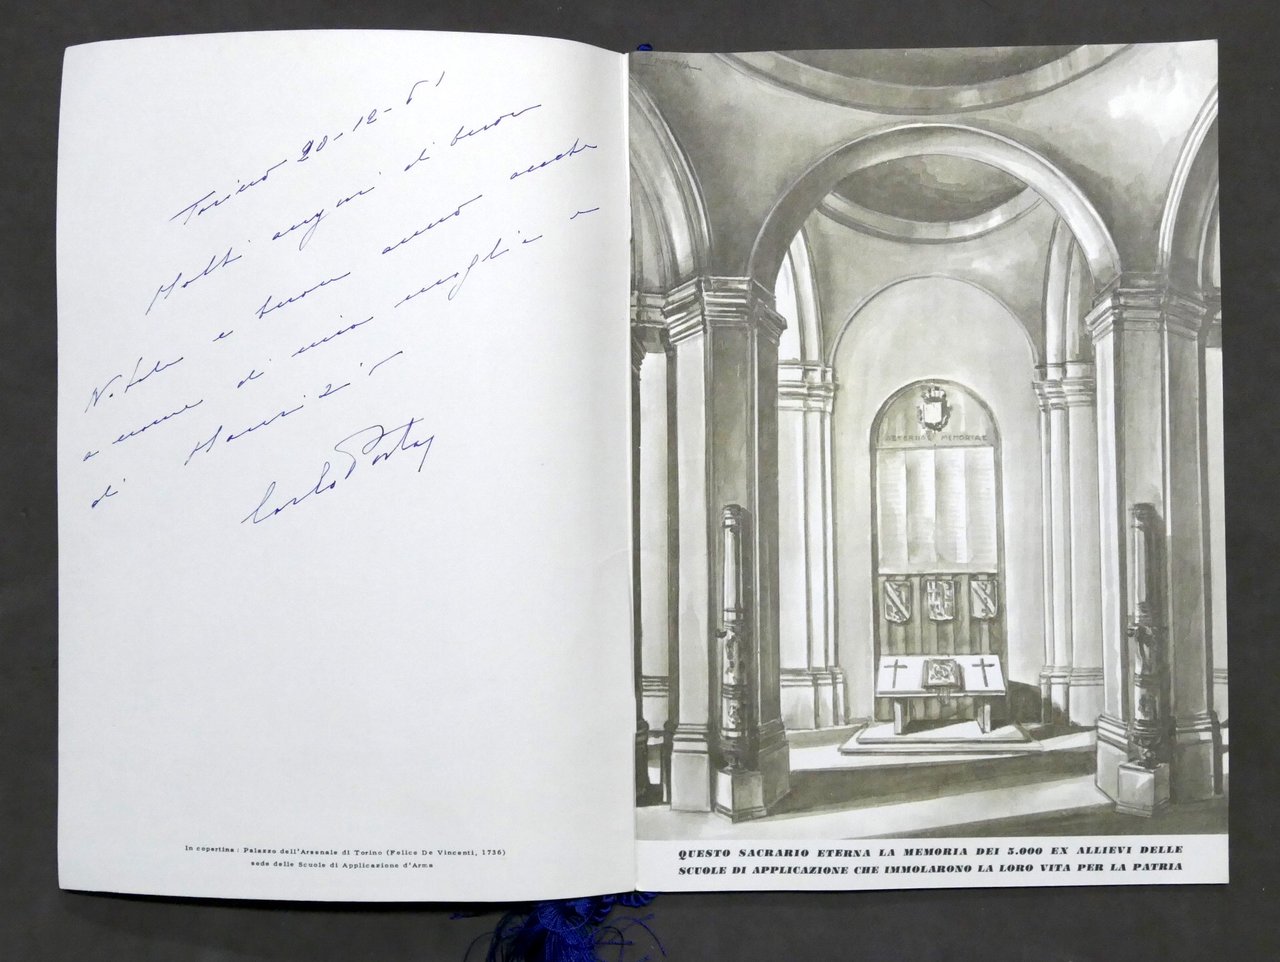 Torino 20-12-61
Molti auguri di buon
Natale e buon anno anche
a nome di mia moglie e
di Maurizio
Carlo Porta
In copertina : Palazzo dell'Arsenale di Torino (Felice De Vincenti, 1736)
sede delle Scuole di Applicazione d'Arma
AETERNAE MEMORIAE
QUESTO SACRARIO ETERNA LA MEMORIA DEI 5.000 EX ALLIEVI DELLE
SCUOLE DI APPLICAZIONE CHE IMMOLARONO LA LORO VITA PER LA PATRIA